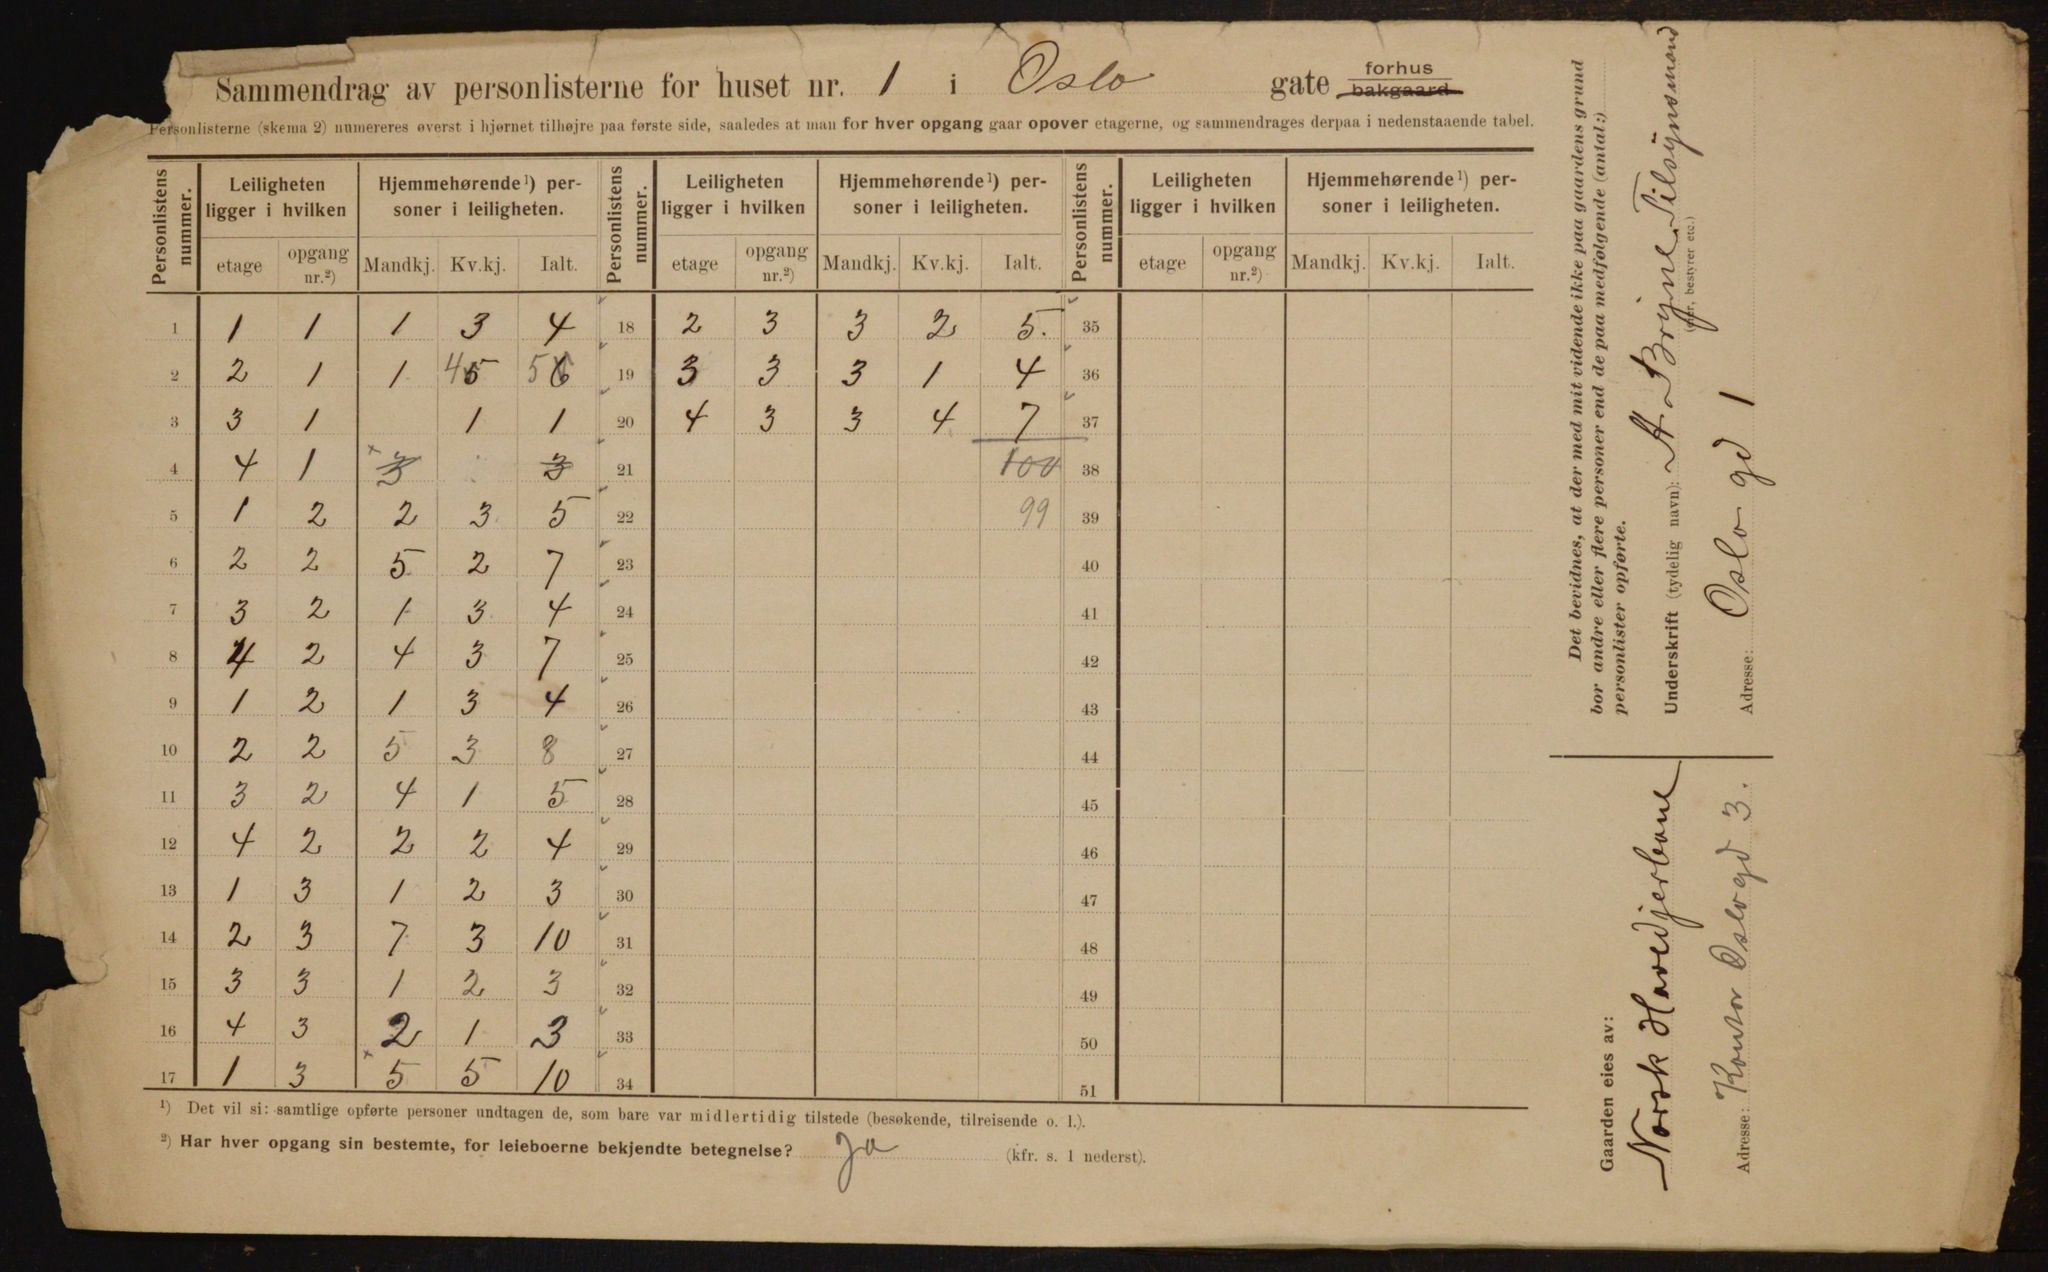 Sammendrag av personlisterne for huset nr. 1 i Oslo gate forhus bakgaard
Personlisterne (skema 2) numereres øverst i hjørnet tilhøjre paa første side, saaledes at man for hver opgang gaar opover etagerne, og sammendrages derpaa i nedenstaaende tabel.
Personlistens nummer. Leiligheten ligger i hvilken Hjemmehørende¹) personer i leiligheten. Personlistens nummer. Leiligheten ligger i hvilken Hjemmehørende¹) personer i leiligheten. Personlistens nummer. Leiligheten ligger i hvilken Hjemmehørende¹) personer i leiligheten.
etage opgang nr.²) Mandkj. Kv.kj. Ialt. etage opgang nr.²) Mandkj. Kv.kj. Ialt. etage opgang nr.²) Mandkj. Kv.kj. Ialt.
1 1 1 1 3 4 18 2 3 3 2 5. 35
2 2 1 1 4 5 5 6 19 3 3 3 1 4 36
3 3 1 1 1 20 4 3 3 4 7 37
4 4 1 3 3 21 100 38
5 1 2 2 3 5 22 99 39
6 2 2 5 2 7 23 40
7 3 2 1 3 4 24 41
8 4 2 4 3 7 25 42
9 1 2 1 3 4 26 43
10 2 2 5 3 8 27 44
11 3 2 4 1 5 28 45
12 4 2 2 2 4 29 46
13 1 3 1 2 3 30 47
14 2 3 7 3 10 31 48
15 3 3 1 2 3 32 49
16 4 3 2 1 3 33 50
17 1 3 5 5 10 34 51
¹) Det vil si: samtlige opførte personer undtagen de, som bare var midlertidig tilstede (besøkende, tilreisende o. l.).
²) Har hver opgang sin bestemte, for leieboerne bekjendte betegnelse? Ja (kfr. s. 1 nederst).
Det bevidnes, at der med mit vidende ikke paa gaardens grund
bor andre eller flere personer end de paa medfølgende (antal:)
personlister opførte.
Underskrift (tydelig navn): A. Bryne Tilsynsmand
(eier, bestyrer etc.)
Adresse: Oslo gd 1
Gaarden eies av:
Norsk Hovedjerbane
Adresse: Kontor Oslogd 3.